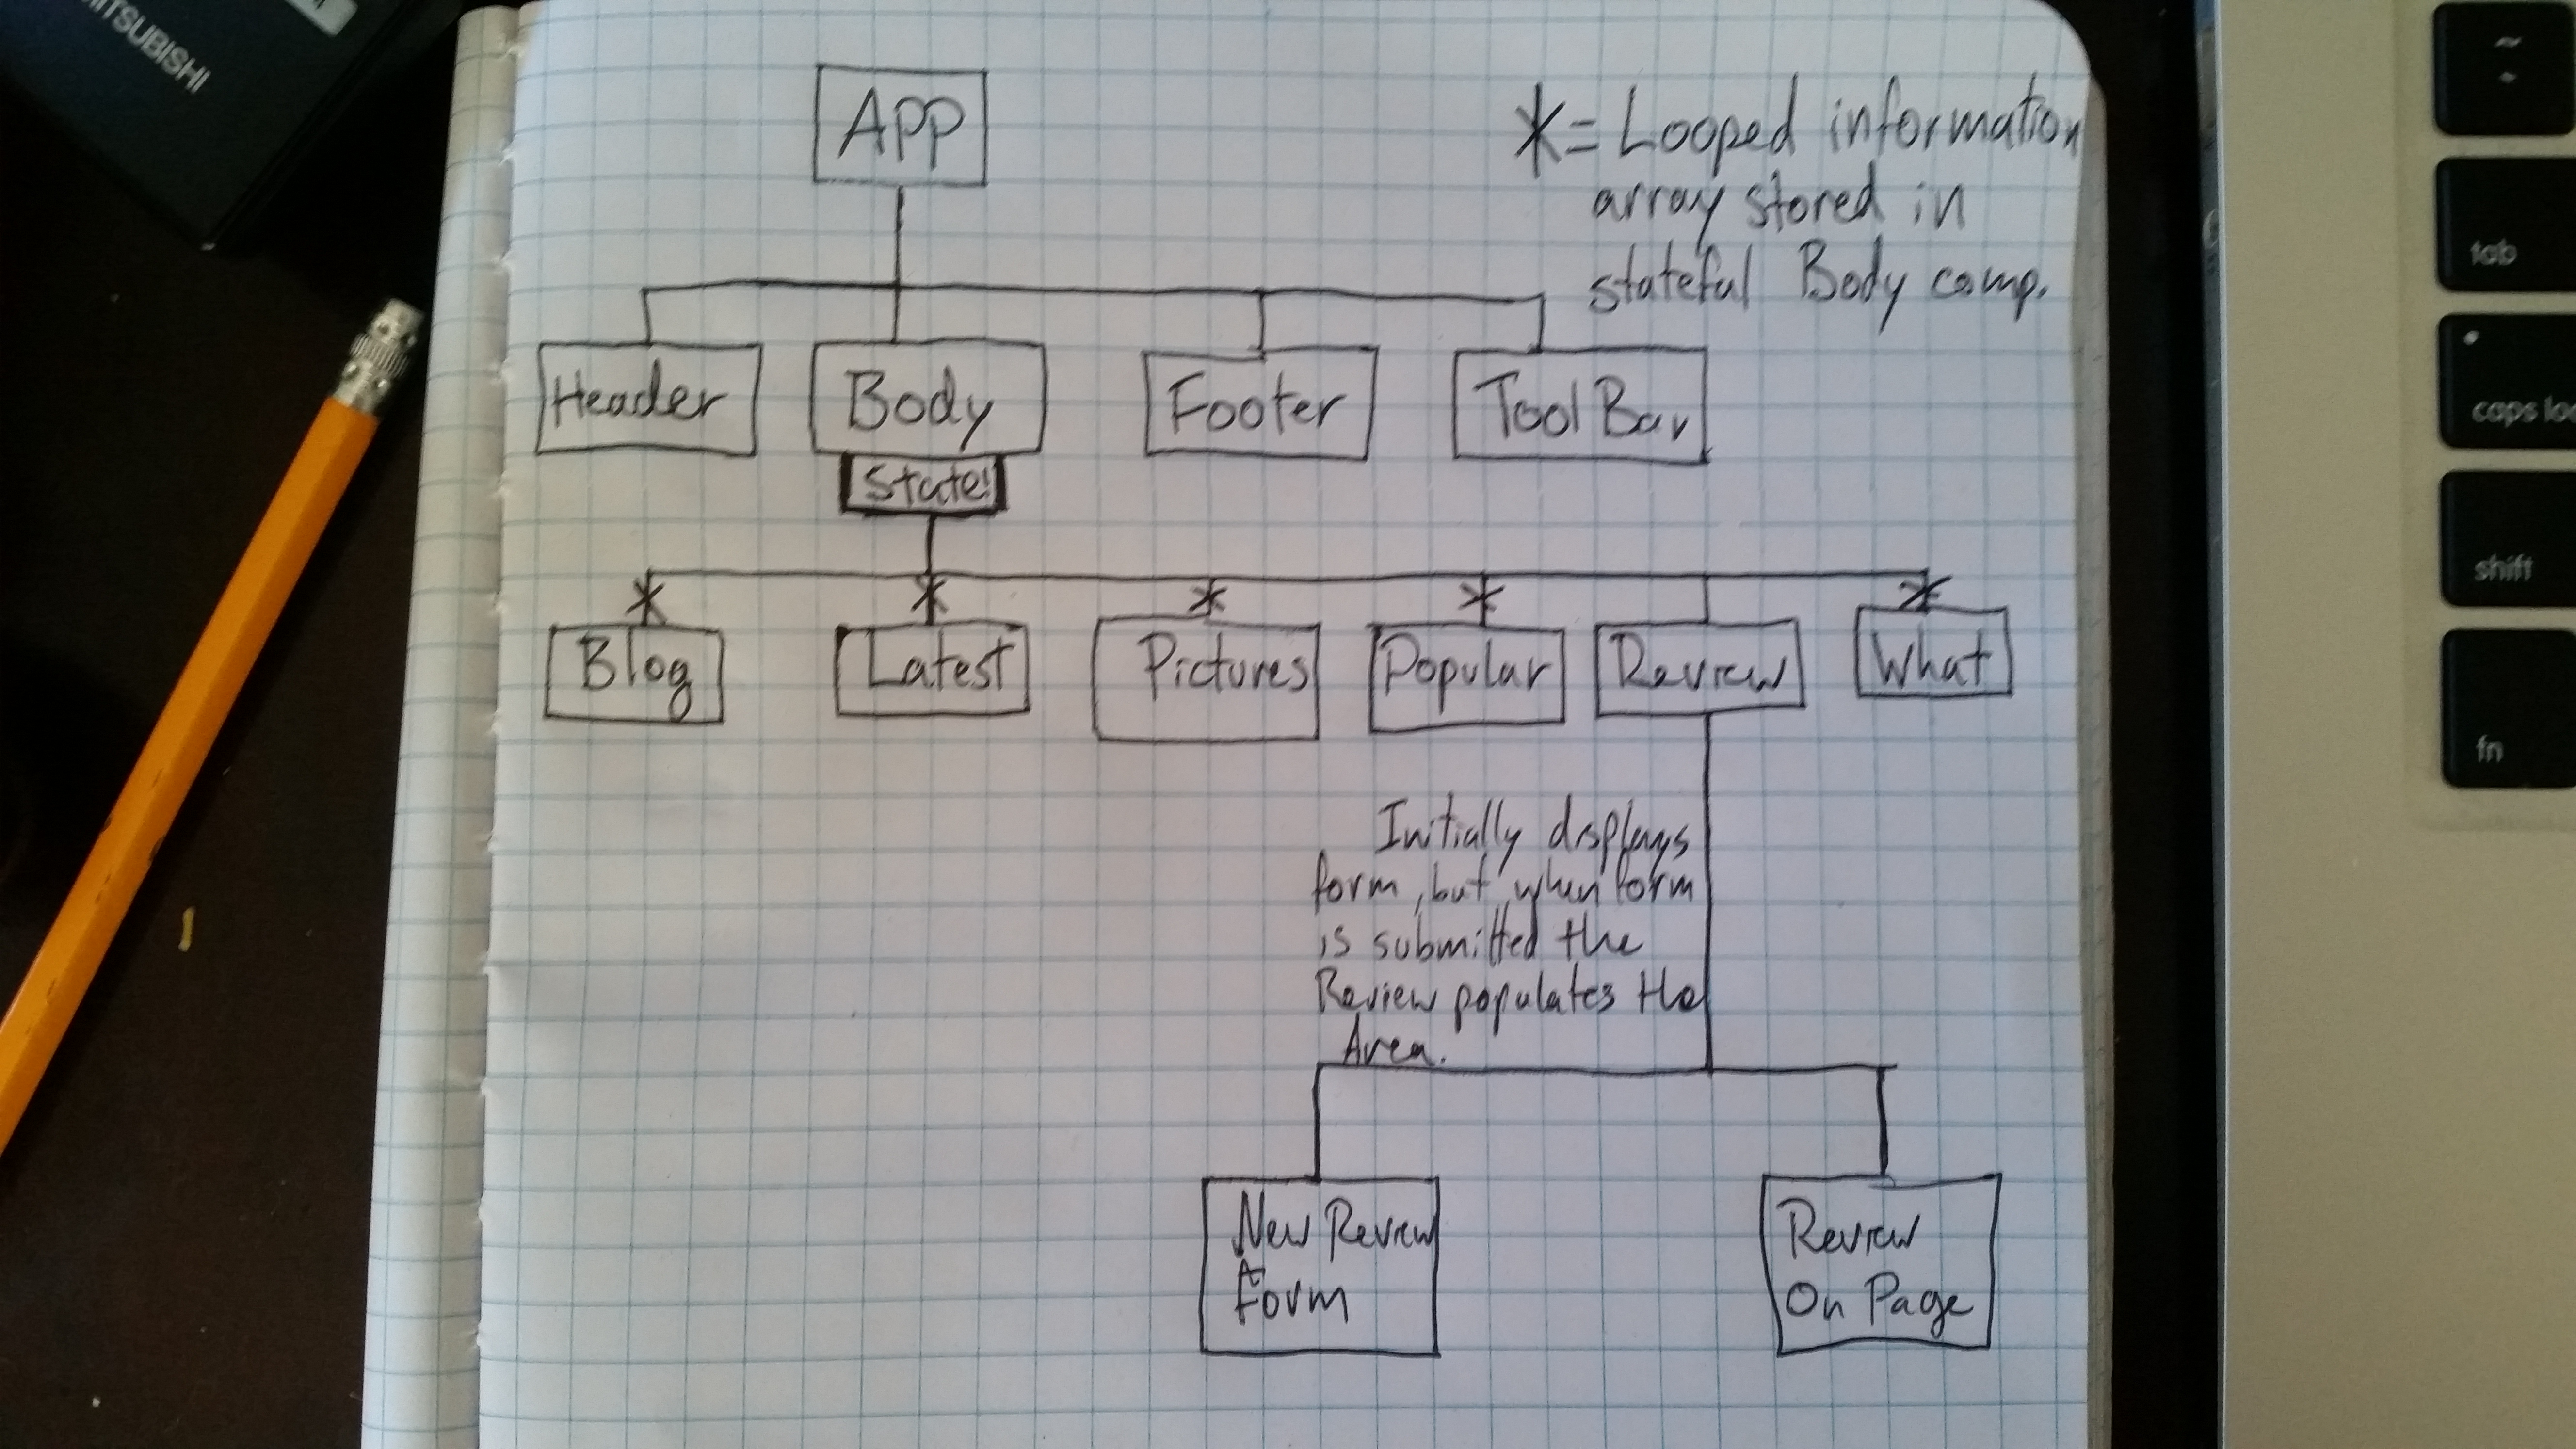 App
*=Looped information
array stored in
stateful Body comp.
Header
Body
Footer
ToolBar
State!
Blog
Latest
Pictures
Popular
Review
What
Initially displays
form, but when form
is submitted the
Review populates the
Area.
New Review
Form
Review
On Page
ITSUBISHI
~
tab
caps loc
shift
fn